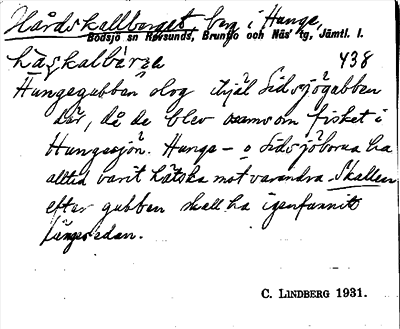 Hårdskallberget, berg i Hunge,
Bodsjö sn Revsunds, Brunflo och Näs' tg, Jämtl. l.
438
Hungegubben slog ihjäl Sidsjögubben
där, då de blev osams om fisket i
Hungesjön. Hunge- o Sidsjöborna ha
alltid varit hätska mot varandra. Skallen
efter gubben skall ha igenfunnits
längesedan.
C. LINDBERG 1931.